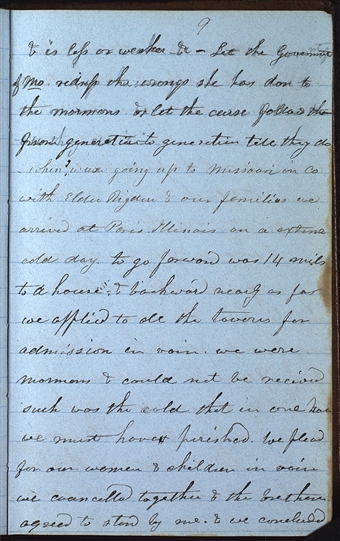 9
& is less or weaker &c - Let the Government
of Mo. redress the wrongs she has don to
the mormons or let the curse follow them
from generation to generation till they do
when I was going up to Missouri in co
with Elder Rigdon & our families we
arrived at Paris Illinois on a extreme
cold day. to go forward was 14 miles
to a house. & backward nearly as far
we applied to all the taverns for
admission in vain. we were
mormons & could not be recivd
such was the cold that in one hour
we must have perished. We plead
for our women & children in vain
we councelled together & the brethern
agreed to stand by me. & we concluded